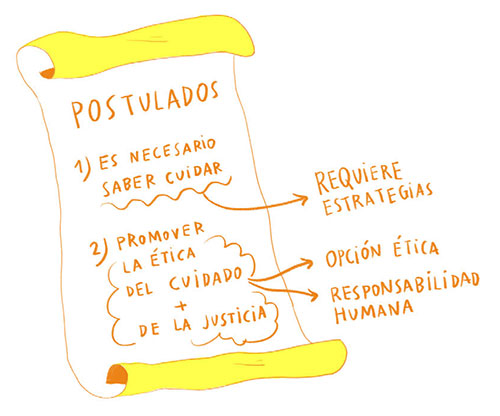 POSTULADOS
1) ES NECESARIO
SABER CUIDAR
REQUIERE
ESTRATEGIAS
2) PROMOVER
LA ÉTICA
DEL CUIDADO
+
DE LA JUSTICIA
OPCIÓN ÉTICA
RESPONSABILIDAD
HUMANA